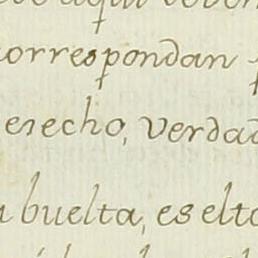 aqui
correspondan
erecho, verda
buelta, es elto